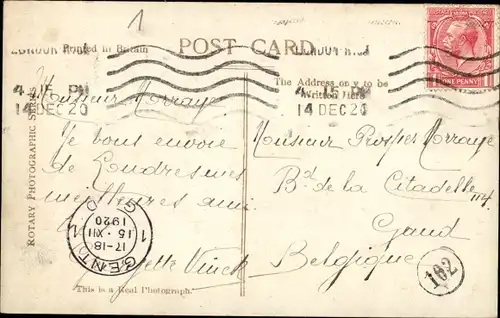 1
Printed in Britain
POST CARD
LONDON
4.15 PM
14 DEC 20
4.15 PM
14 DEC 20
ONE PENNY
The Address only to be
Written Here
ROTARY PHOTOGRAPHIC SERIES
Monsieur Morraye.
Je vous envoie
de Londres mes
meilleures ami
Vinck
Monsieur Prosper Morraye
Bd de la Citadelle 114
Gand
Belgique
GENT
17-18
15·XII
1920
102
This is a Real Photograph.